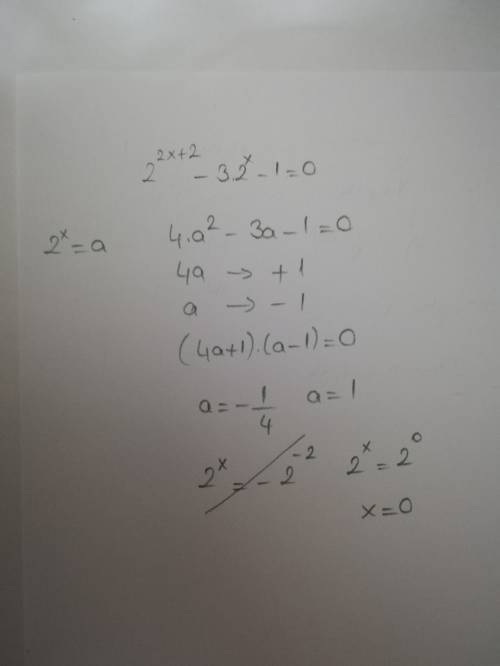 2^(2x+2) - 3.2^x - 1 = 0
2^x = a    4.a² - 3a - 1 = 0
4a → + 1
a → - 1
(4a+1).(a-1) = 0
a = - 1/4    a = 1
2^x = - 2^-2    2^x = 2^0
x = 0